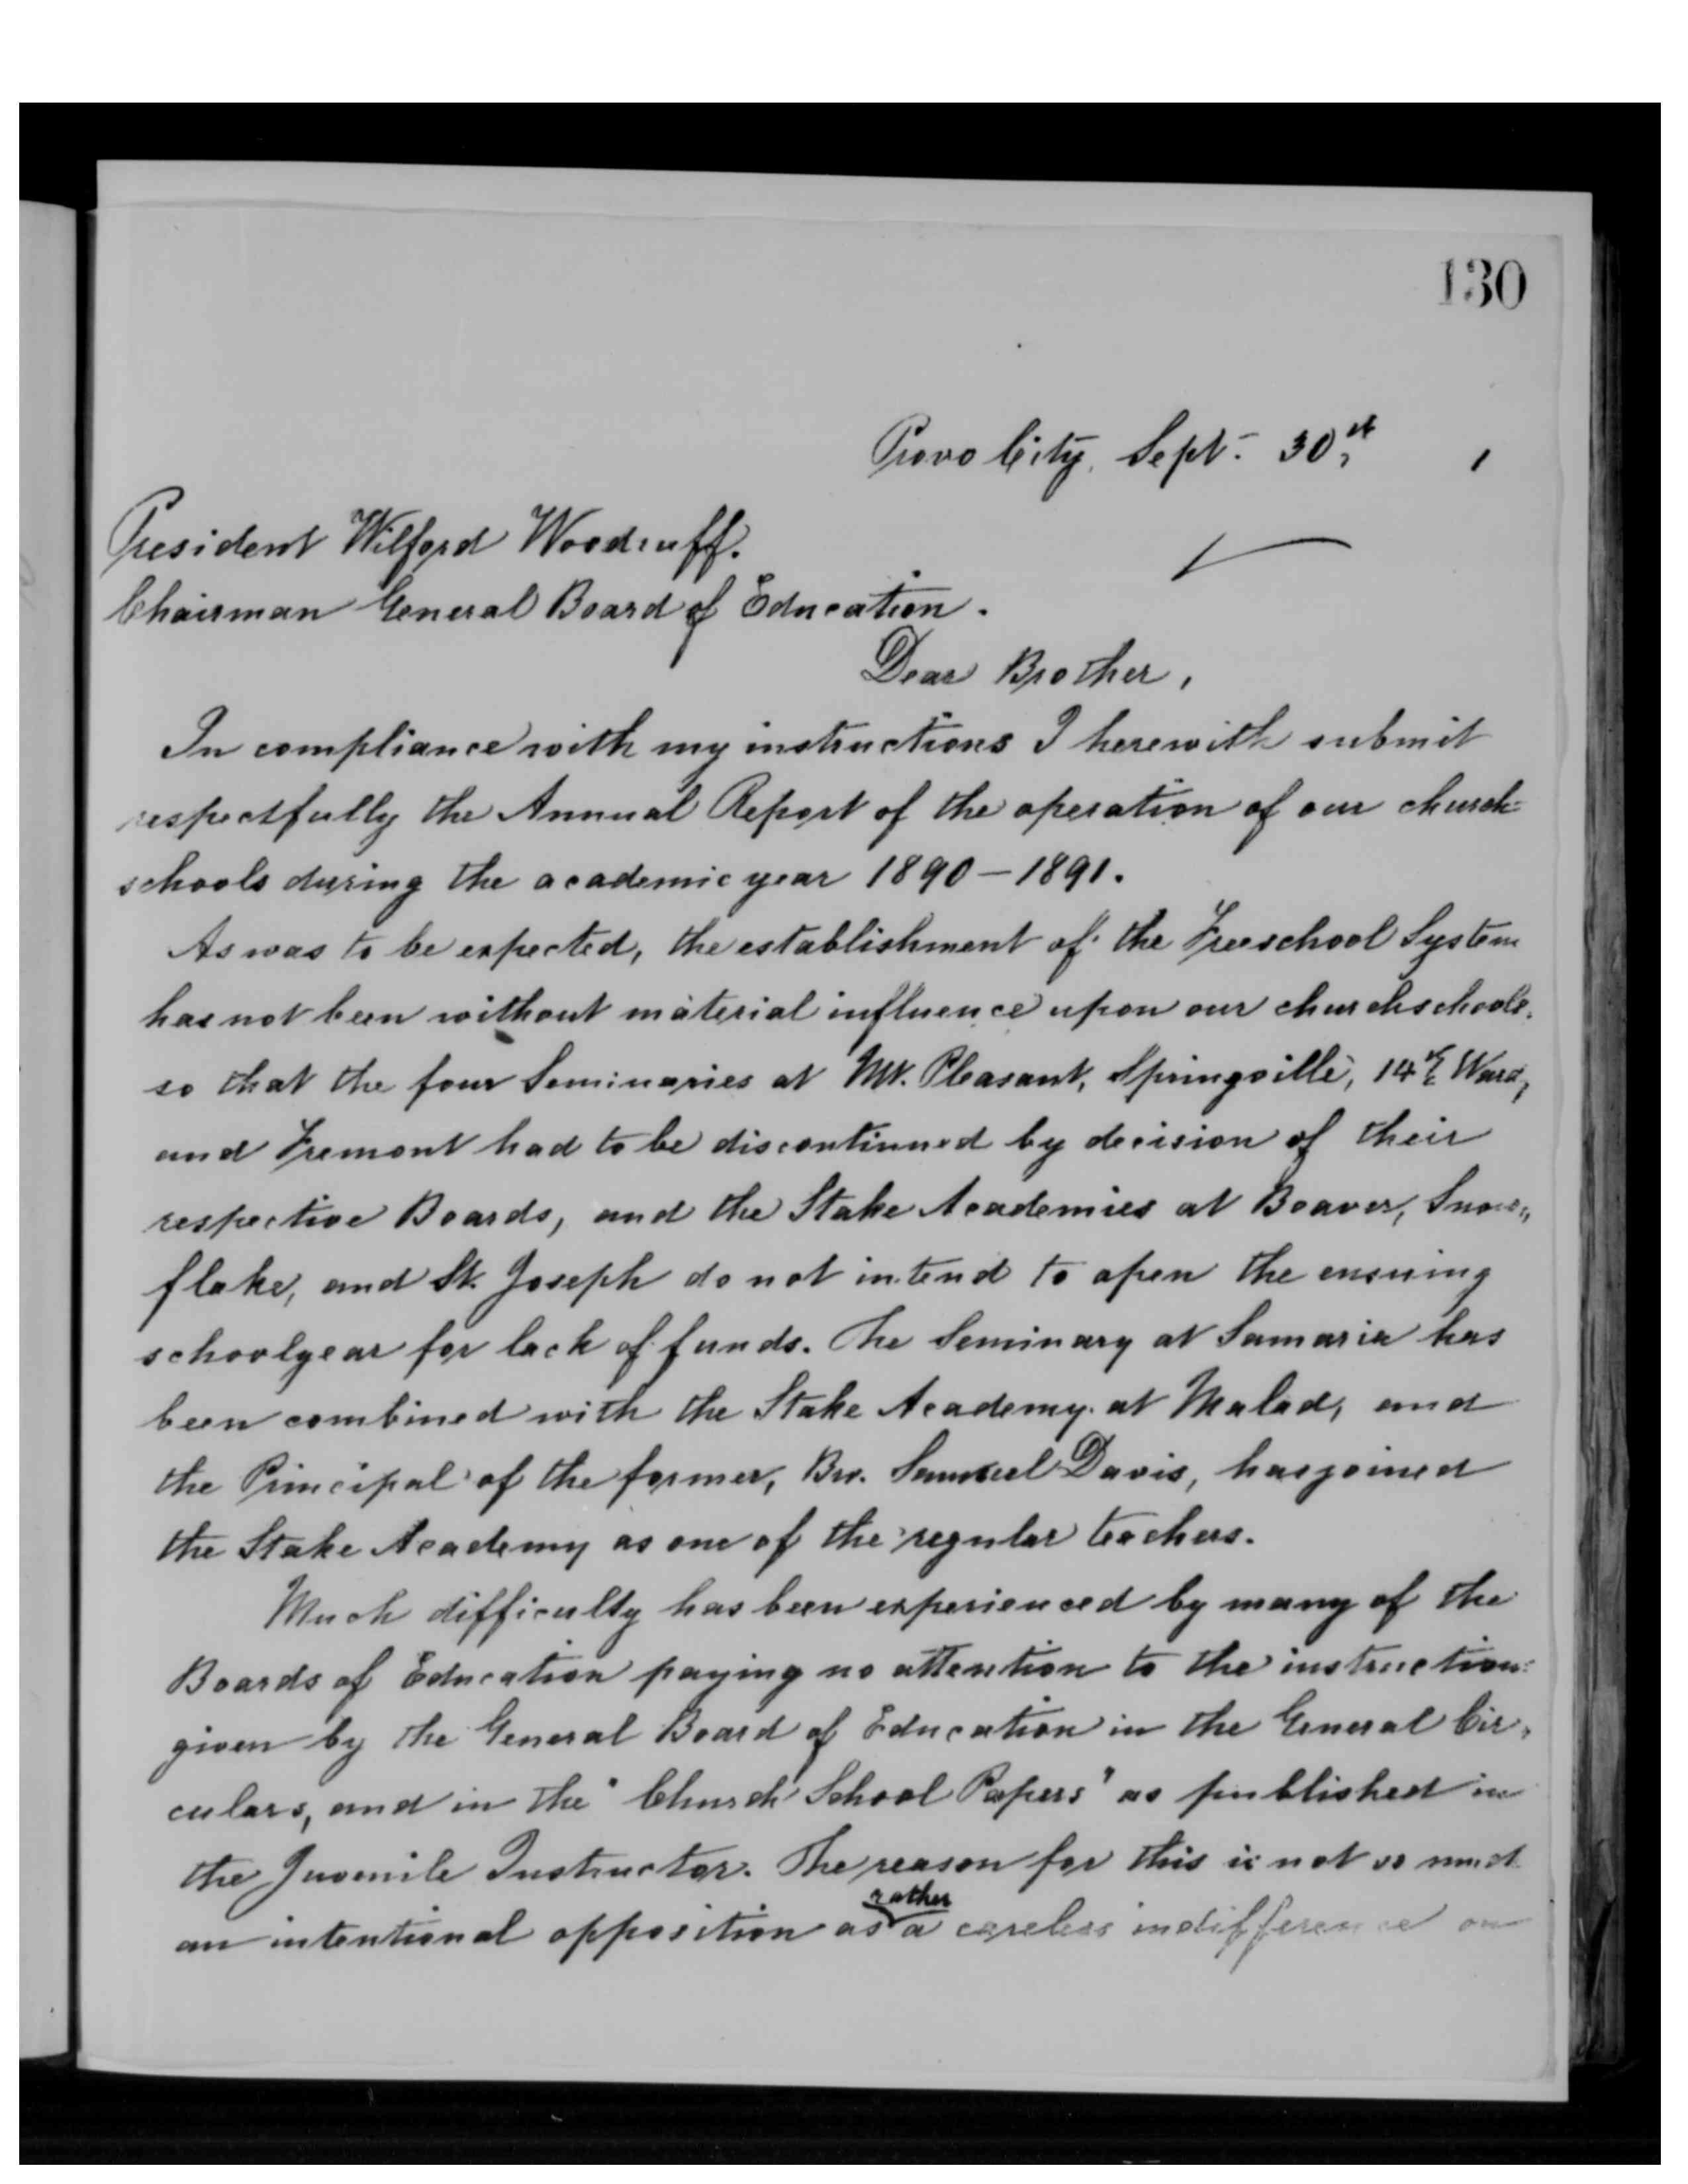 130
Provo City, Sept. 30th,
President Wilford Woodruff.
Chairman General Board of Education.
Dear Brother,
In compliance with my instructions I herewith submit
respectfully the Annual Report of the operation of our church=
schools during the academic year 1890–1891.
As was to be expected, the establishment of the Freeschool System
has not been without material influence upon our churchschools,
so that the four Seminaries at Mt. Pleasant, Springville, 14th Ward,
and Fremont had to be discontinued by decision of their
respective Boards, and the Stake Academies at Beaver, Snow=
flake, and St. Joseph do not intend to open the ensuing
schoolyear for lack of funds. The Seminary at Samaria has
been combined with the Stake Academy at Malad, and
the Principal of the former, Bro. Samuel Davis, has joined
the Stake Academy as one of the regular teachers.
Much difficulty has been experienced by many of the
Boards of Education paying no attention to the instructions
given by the General Board of Education in the General Cir=
culars, and in the "Church School Papers" as published in
the Juvenile Instructor. The reason for this is not so much
an intentional opposition as rather a careless indifference on